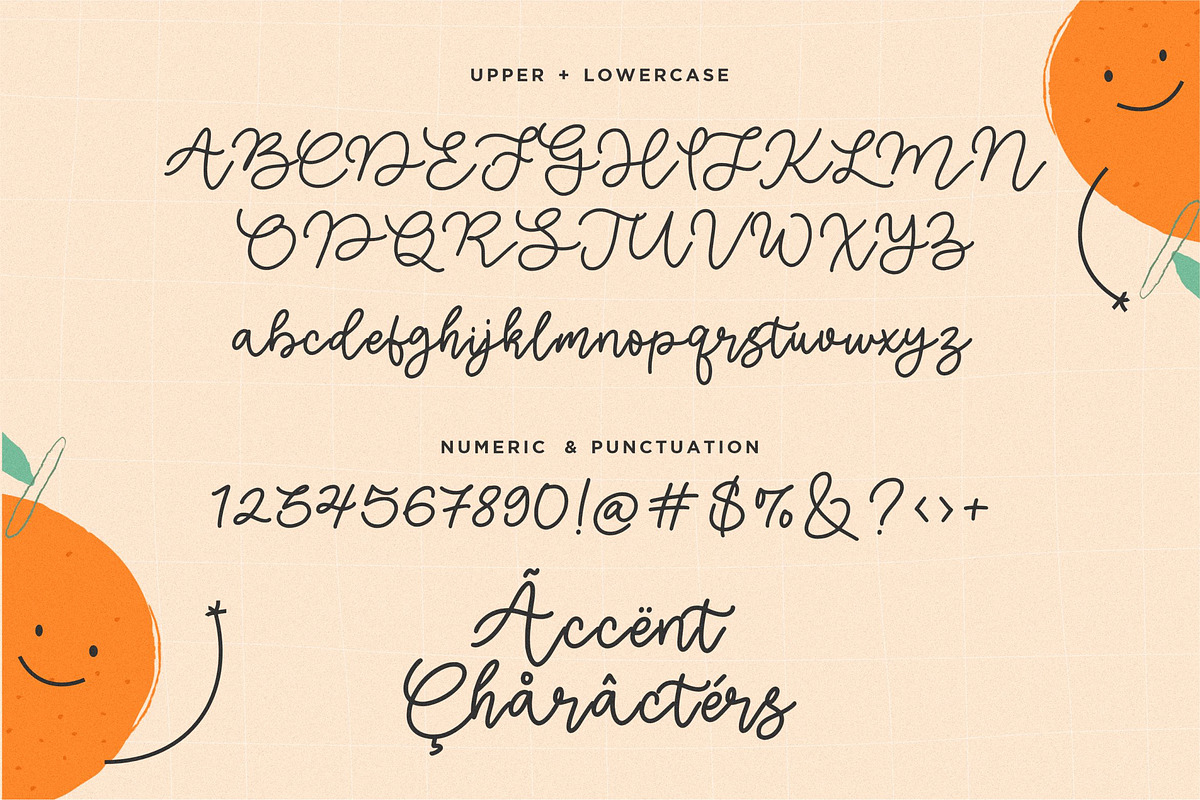 UPPER + LOWERCASE
ABCDEFGHIJKLMN
OPQRSTUVWXYZ
abcdefghijklmnopqrstuvwxyz
NUMERIC & PUNCTUATION
1234567890!@#$%&?<>+
Ãccënt
Çhåråctérs